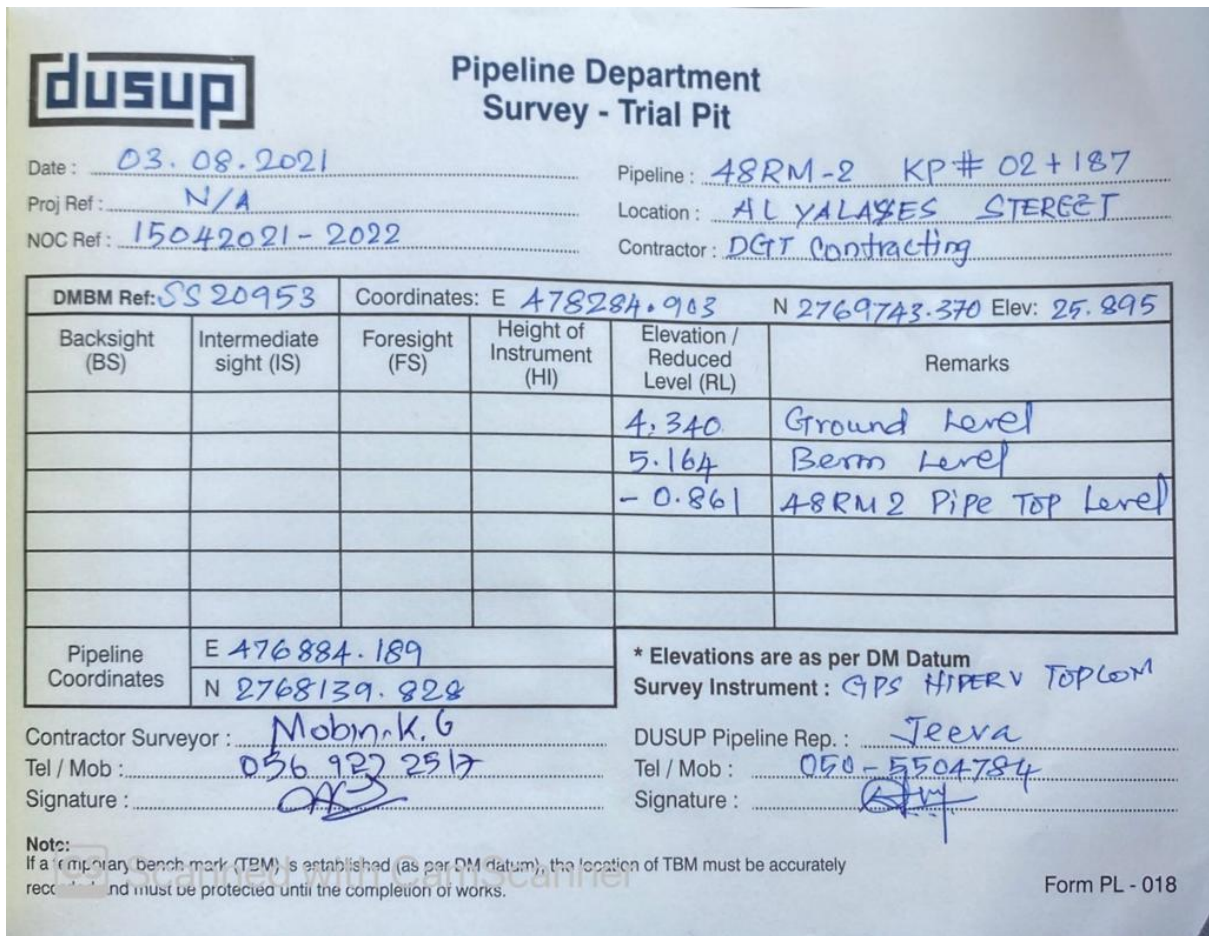 dusup
Pipeline Department
Survey - Trial Pit
Date : 03.08.2021
Pipeline : 48RM-2 KP # 02+187
Proj Ref : N/A
Location : AL YALAYES STEREET
NOC Ref : 15042021-2022
Contractor : DGT Contracting
DMBM Ref: SS20953 Coordinates: E 478284.903 N 2769743.370 Elev: 25.895
Backsight (BS) Intermediate sight (IS) Foresight (FS) Height of Instrument (HI) Elevation / Reduced Level (RL) Remarks
4.340 Ground Level
5.164 Berm Level
- 0.861 48RM2 Pipe Top Level
Pipeline Coordinates
E 476884.189
N 2768139.828
* Elevations are as per DM Datum
Survey Instrument : GPS HIPER V TOPCOM
Contractor Surveyor : Mobin.K.G
DUSUP Pipeline Rep. : Jeeva
Tel / Mob : 056 922 2517
Tel / Mob : 050-5504784
Signature :
Signature :
Note:
If a temporary bench mark (TBM) is established (as per DM datum), the location of TBM must be accurately
and must be protected until the completion of works.
Scanned with CamScanner
Form PL - 018